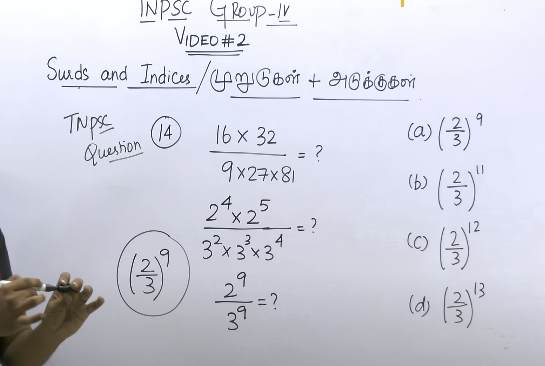 TNPSC GROUP-IV
VIDEO#2
Surds and Indices / முறுடுகள் + அடுக்குகள்
TNPSC
Question
14
16 × 32
9 × 27 × 81
= ?
2^4 × 2^5
3^2 × 3^3 × 3^4
= ?
2^9
3^9
= ?
(2/3)^9
(a) (2/3)^9
(b) (2/3)^11
(c) (2/3)^12
(d) (2/3)^13